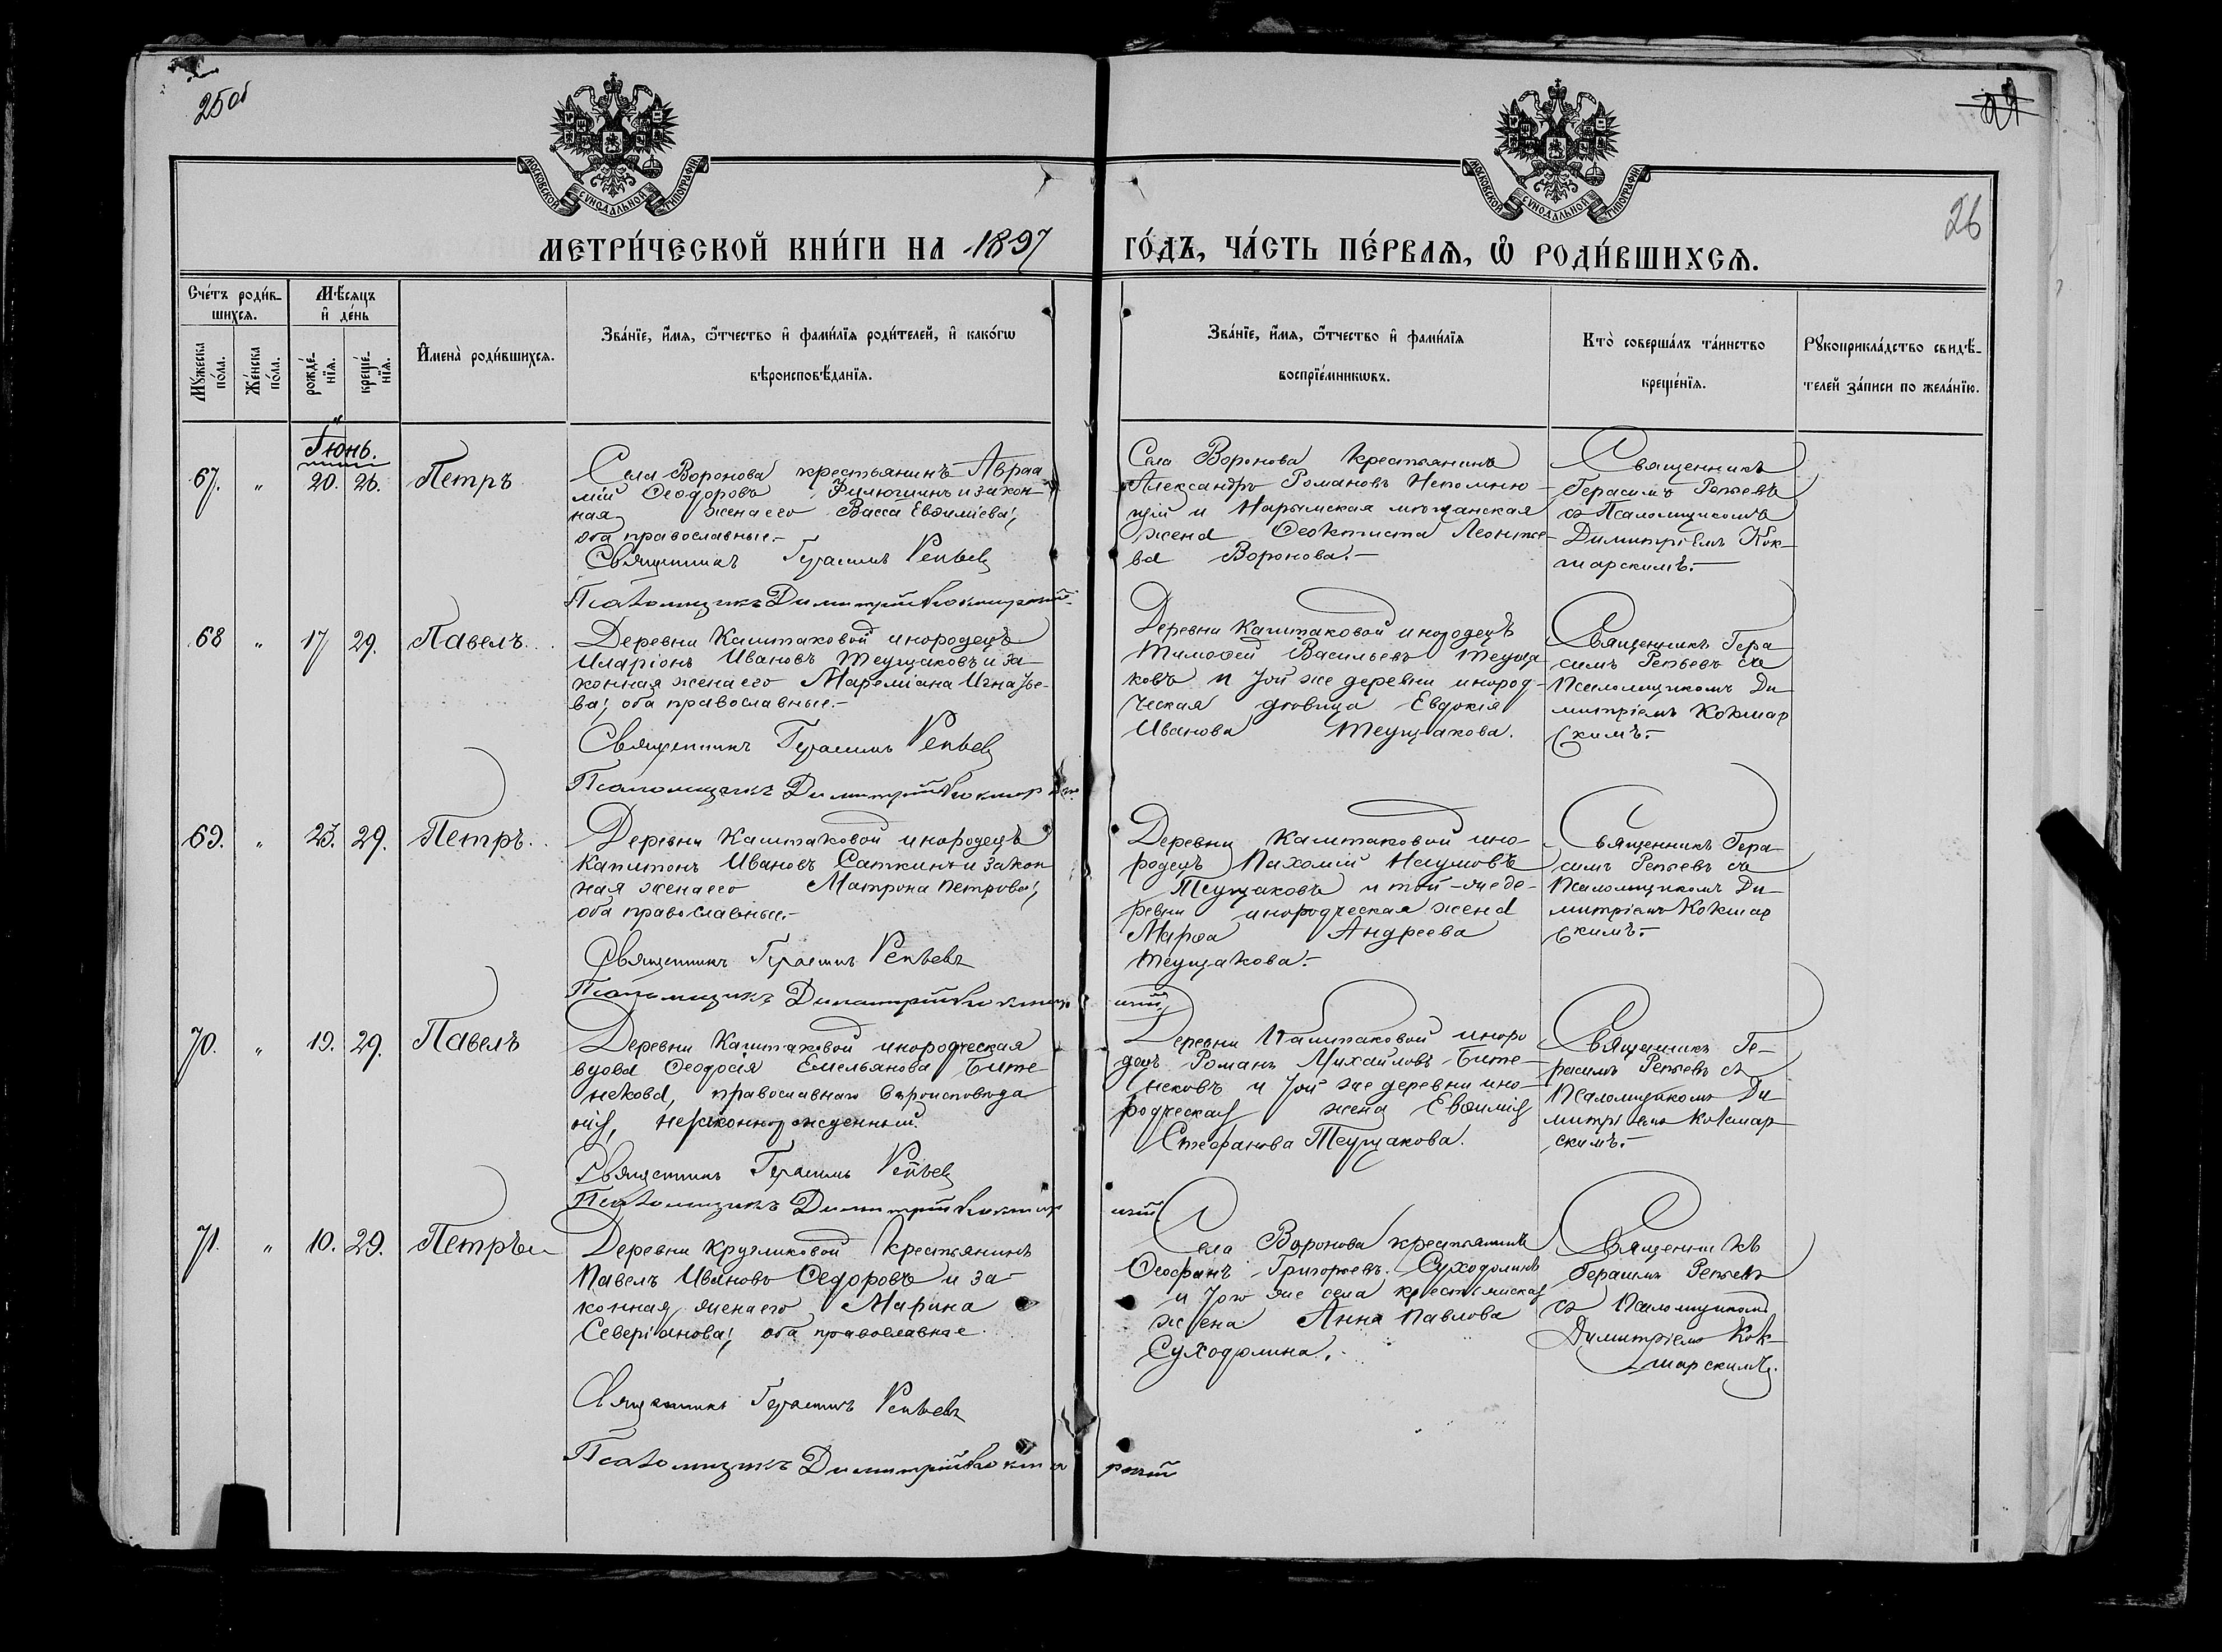 25об
26
МОСКОВСКОЙ СѴНОДАЛЬНОЙ ТИПОГРАФІИ
МОСКОВСКОЙ СѴНОДАЛЬНОЙ ТИПОГРАФІИ
МЕТРИ́ЧЕСКОЙ КНИ́ГИ НА 1897 ГО́ДЪ, ЧА́СТЬ ПЕ́РВАЯ, Ѡ РОДИ́ВШИХСЯ.
Сче́тъ роди́в-
шихся.
Мꙋжеска по́ла.
Же́нска по́ла.
Мѣ́сяцъ
и де́нь
рожде́-
нїя.
креще́-
нїя.
Имена̀ роди́вшихся.
Зва́нїе, и́мя, ѻ҆́тчество и фами́лїя роди́телей, и како́гѡ
вѣроисповѣ́данїя.
Зва́нїе, и́мя, ѻ҆́тчество и фами́лїя
воспрїе́мникѡвъ.
Кто̀ соверша́лъ та́инство
креще́нїя.
Рꙋкоприкла́дство свидѣ́-
телей за́писи по жела́нїю.
Іюнь.
67. " 20. 26. Петръ
Села Воронова крестьянинъ Авраа
мій Ѳеодоровъ Филюгинъ и закон-
ная жена его Васса Евѳиміева,
оба православные.-
Священникъ Герасимъ Репьевъ
Псаломщикъ Димитрій Кокшарскій
Села Воронова крестьянинъ
Александръ Романовъ Непомню-
щій и Нарымская мѣщанская
жена Ѳеоктиста Леонтье-
ва Воронова.-
Священникъ
Герасимъ Репьевъ
съ Псаломщикомъ
Димитріемъ Кок-
шарскимъ.-
68 " 17 29. Павелъ.
Деревни Каштаковой инородецъ
Иларіонъ Ивановъ Теущаковъ и за-
конная жена его Мареміана Игнатье-
ва, оба православные.-
Священникъ Герасимъ Репьевъ
Псаломщикъ Димитрій Кокшарскій
Деревни Каштаковой инородецъ
Тимоѳей Васильевъ Теуща
ковъ и той же деревни инород-
ческая вдовица Евдокія
Иванова Теущакова.
Священникъ Гера
симъ Репьевъ съ
Псаломщикомъ Ди
митріемъ Кокшар
скимъ.-
69. " 23. 29. Петръ.
Деревни Каштаковой инородецъ
Капитонъ Ивановъ Саткинъ и закон
ная жена его Матрона Петрова,
оба православные.-
Священникъ Герасимъ Репьевъ
Псаломщикъ Димитрій Кокшар
скій
Деревни Каштаковой ино-
родецъ Пахомій Наумовъ
Теущаковъ и той-же де-
ревни инородческая жена
Марѳа Андреева
Теущакова.-
Священникъ Гера
симъ Репьевъ съ
Псаломщикомъ Ди-
митріемъ Кокшар
скимъ.-
70. " 19. 29. Павелъ
Деревни Каштаковой инородческая
вдова Ѳеодосія Емельянова Бите-
некова, православнаго вѣроисповѣда
нія, незаконнорожденный.
Священникъ Герасимъ Репьевъ
Псаломщикъ Димитрій Кокшар
скій
Деревни Каштаковой иноро
децъ Романъ Михайловъ Бите-
нековъ и той же деревни ино-
родческая жена Евѳимія
Стефанова Теущакова.
Священникъ Ге-
расимъ Репьевъ съ
Псаломщикомъ Ди
митріемъ Кокшар
скимъ.-
71. " 10. 29. Петръ
Деревни Кругликовой крестьянинъ
Павелъ Ивановъ Ѳедоровъ и за-
конная жена его Марина
Северіанова, оба православные
Священникъ Герасимъ Репьевъ
Псаломщикъ Димитрій Кокша
рскій
Села Воронова крестьянинъ
Ѳеофанъ Григорьевъ Суходолинъ
и того же села крестьянская
жена Анна Павлова
Суходолина.
Священникъ
Герасимъ Репьевъ
съ Псаломщикомъ
Димитріемъ Кок-
шарскимъ.